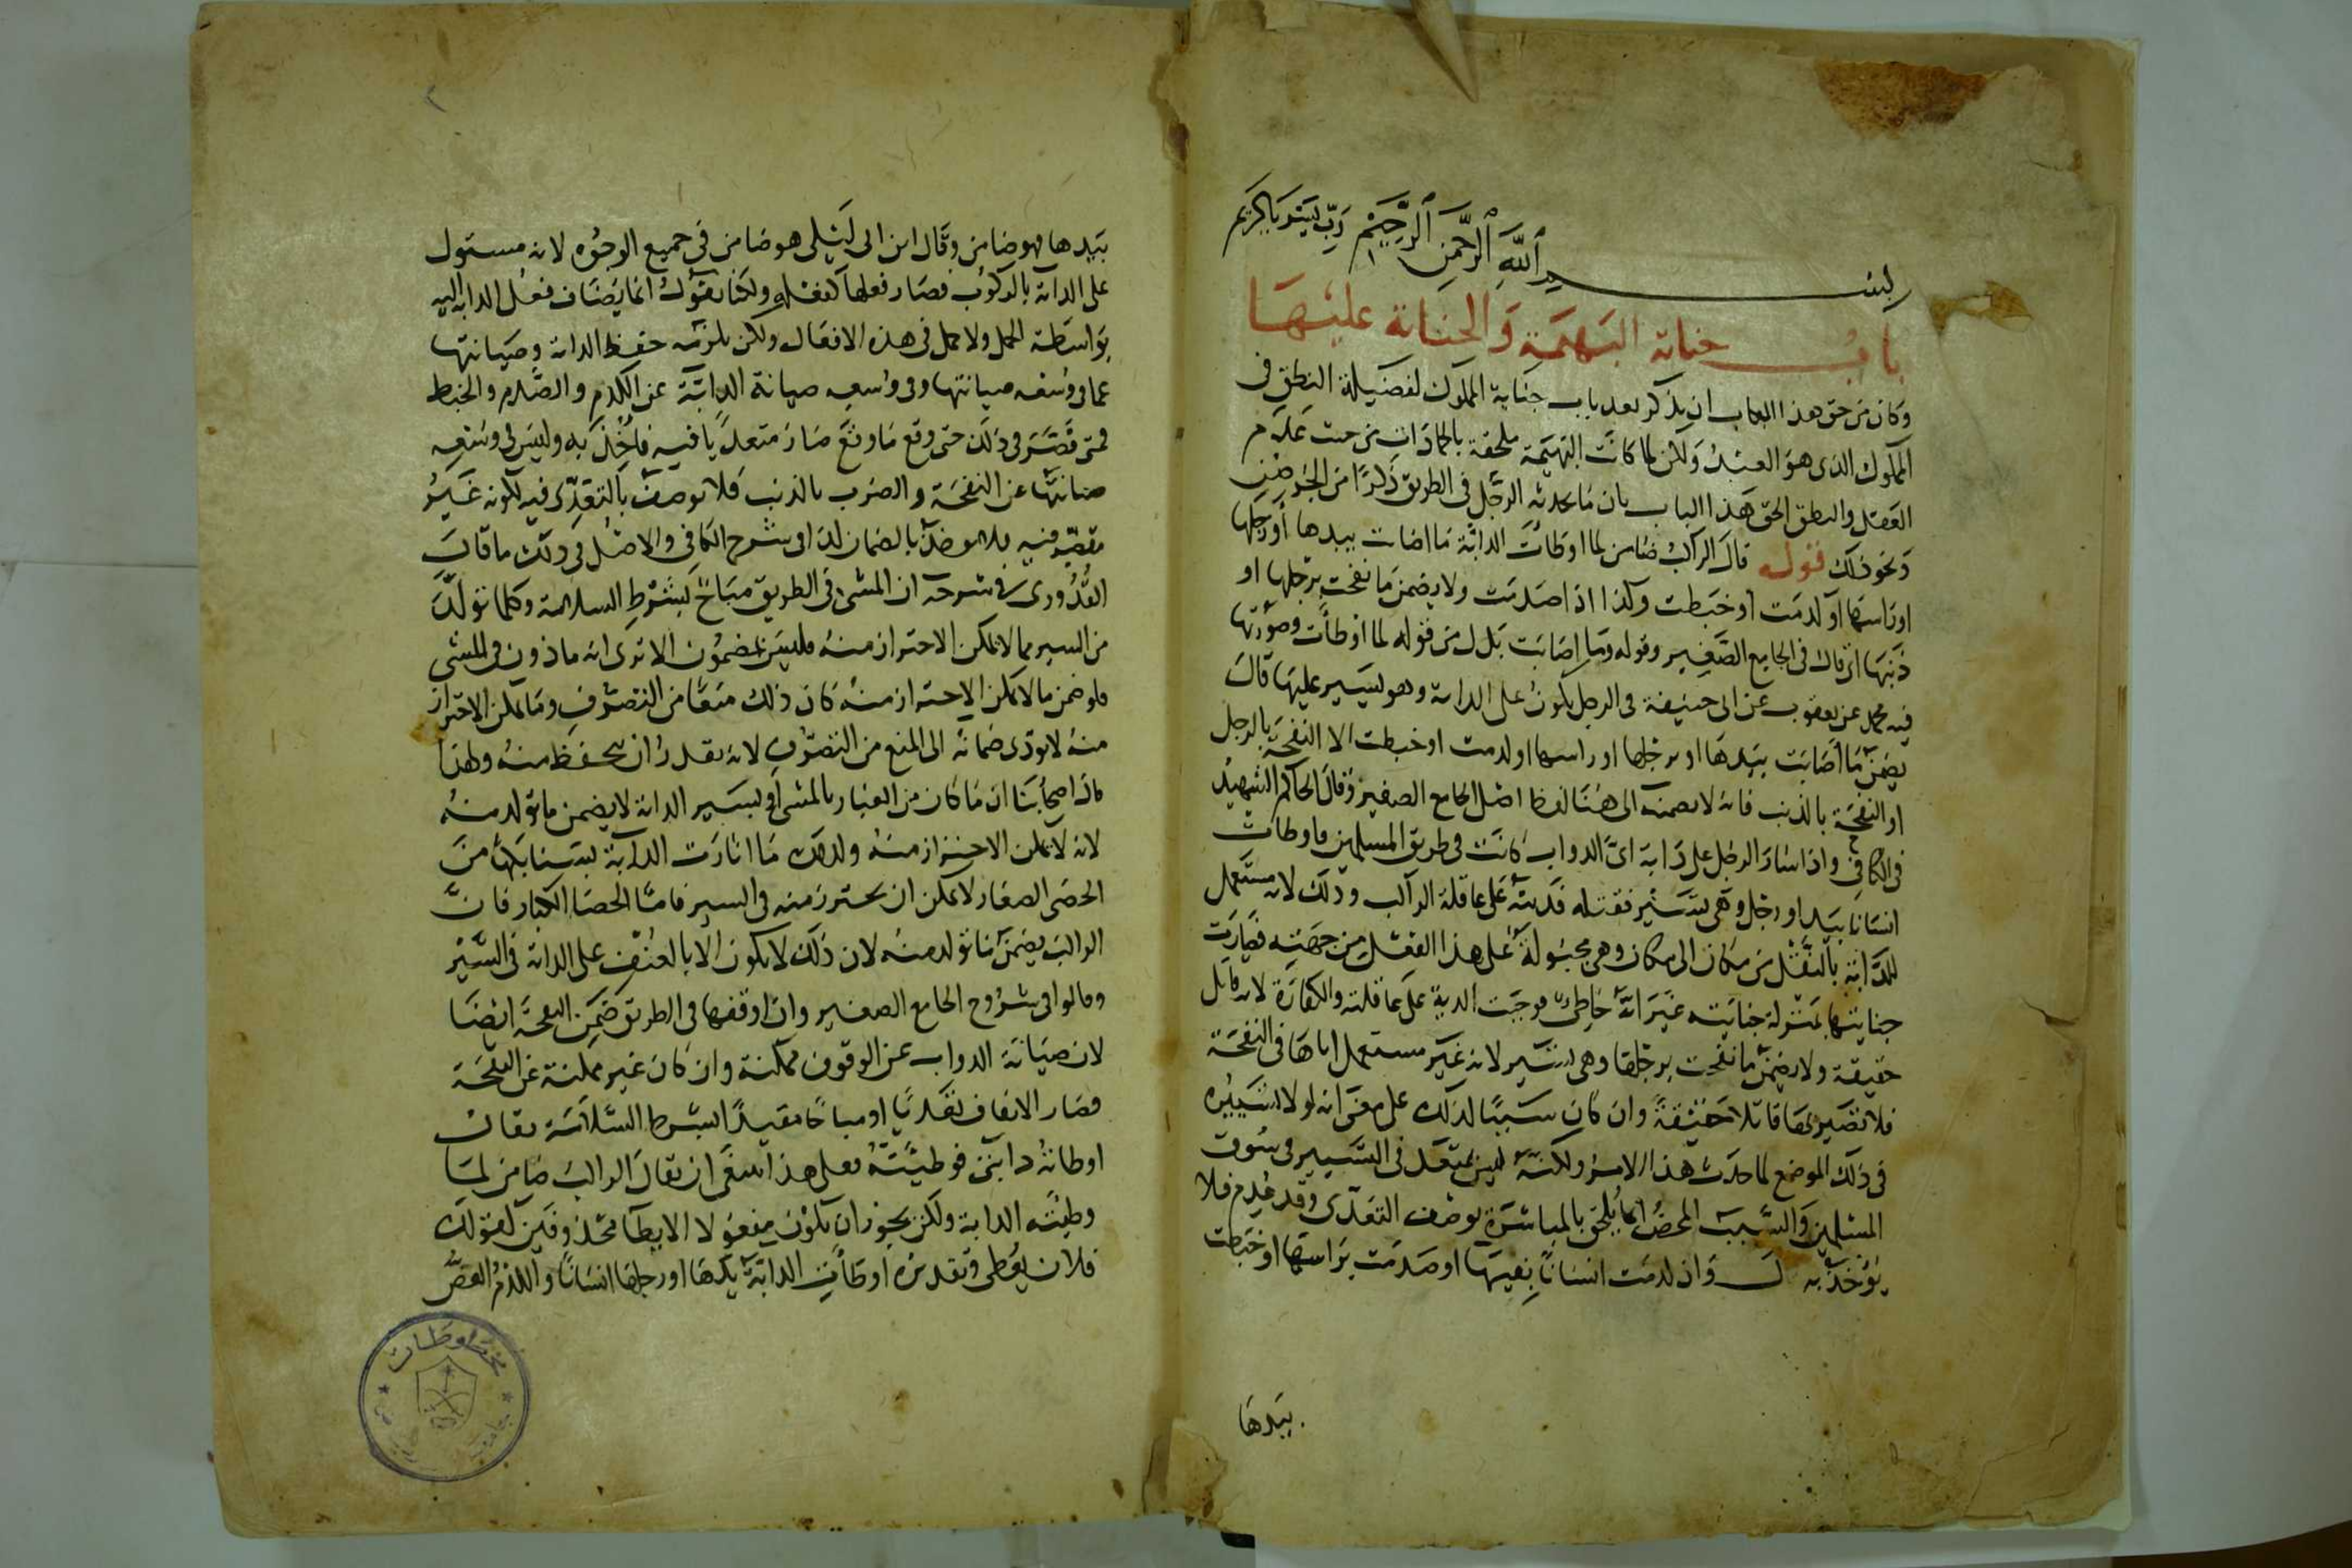 بسم الله الرحمن الرحيم رب يسر يا كريم
باب جناية البهيمة والجناية عليها
وكان من حق هذا الباب ان يذكر بعد باب جناية المملوك لفضيلة النطق في
المملوك الذي هو العبد ولكن لما كانت البهيمة ملحقة بالجمادات من حيث عدم
العقل والنطق الحق هذا الباب بباب ما يحدثه الرجل في الطريق ذكرا من الجرصن
ونحو ذلك قوله قال الراكب ضامن لما اوطات الدابة ما اصابت بيدها او رجلها
او راسها او كدمت او خبطت وكذا اذا صدمت ولا يضمن ما نفحت برجلها او
ذنبها اذ قال في الجامع الصغير وقوله وما اصابت بدل من قوله لما اوطات وصورتها
فيه محمد عن يعقوب عن ابى حنيفة في الرجل يكون على الدابة وهو يسير عليها قال
يضمن ما اصابت بيدها او برجلها او راسها او كدمت او خبطت الا النفحة بالرجل
او النفحة بالذنب فانه لا يضمنه الى هنا لفظ اصل الجامع الصغير وقال الحاكم الشهيد
في الكافي واذا سار الرجل على دابة اى الدواب كانت في طريق المسلمين فاوطات
انسانا بيد او رجل وهي تسير فقتله فديته على عاقلة الراكب وذلك لانه مستعمل
للدابة بالنقل من مكان الى مكان وهي مجبولة على هذا الفعل من جهته فصارت
جنايتها بمنزلة جنايته غير انه خاطئ فوجبت الدية على عاقلته والكفارة لانه قاتل
حقيقة ولا يضمن ما نفحت برجلها وهي تسير لانه غير مستعمل اياها في النفحة
فلا تصير بها قاتلا حقيقة وان كان سببا لذلك على معنى انه لولا تسييره
في ذلك الموضع لما حدث هذا الامر ولكنه ليس بمتعد في التسيير في سوق
المسلمين والسبب المحض انما يلحق بالمباشرة بوصف التعدى وقد عدم فلا
يؤخذ به وان كدمت انسانا بفيها او صدمت براسها او خبطت
بيدها
بيدها فهو ضامن وقال ابن ابى ليلى هو ضامن في جميع الوجوه لانه مستول
على الدابة بالركوب فصار فعلها كفعله ولكنا نقول انما يضاف فعل الدابة اليه
بواسطة الحمل ولا حمل في هذه الافعال ولكن يلزمه حفظ الدابة وصيانتها
عما في وسعه صيانتها وفي وسعه صيانة الدابة عن الكدم والصدم والخبط
فمتى قصر في ذلك حتى وقع ما وقع صار متعديا فيه فاخذ به وليس في وسعه
صيانتها عن النفحة والضرب بالذنب فلا يوصف بالتعدى فيه لكونه غير
مقصر فيه فلا يوخذ بالضمان كذا في شرح الكافي والاصل في ذلك ما قال
القدورى في شرحه ان المشى في الطريق مباح بشرط السلامة وكلما تولد
من السير مما لا يمكن الاحتراز منه فليس بمضمون الا ترى انه ماذون في المشى
فلو ضمن ما لا يمكن الاحتراز منه كان ذلك منعا من التصرف وما يمكن الاحتراز
منه لا يؤدى ضمانه الى المنع من التصرف لانه يقدر ان يتحفظ منه ولهذا
قال اصحابنا ان ما كان من الغبار بالمشى او بسير الدابة لا يضمن ما تولد منه
لانه لا يمكن الاحتراز منه وكذلك ما اثارت الدابة بسنابكها من
الحصى الصغار لا يمكن ان يحترز منه في السير فاما الحصا الكبار فان
الراكب يضمن ما تولد منه لان ذلك لا يكون الا بالعنف على الدابة في السير
وقالوا في شروح الجامع الصغير وان اوقفها في الطريق ضمن النفحة ايضا
لان صيانة الدواب عن الوقوف ممكنة وان كان غير ممكنة عن النفحة
فصار الايقاف تعديا او مباحا مقيدا بشرط السلامة يقال
اوطاته دابتى فوطئته فعلى هذا ينبغى ان يقال الراكب ضامن لما
وطئته الدابة ولكن يجوز ان يكون مفعولا الايطا محذوفين كقولك
فلان يعطى وتقديره اوطأت الدابة يدها او رجلها انسانا والكدم العض
مخطوطات